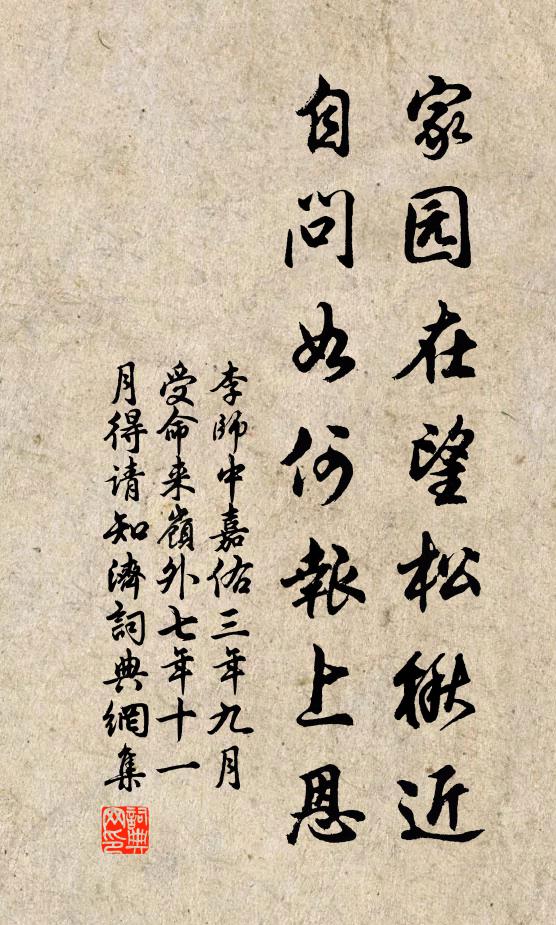 家园在望松楸近
自问如何報上恩
李師中嘉佑三年九月
受命来嶺外七年十一
月得请知濟詞典網集
詞典网印